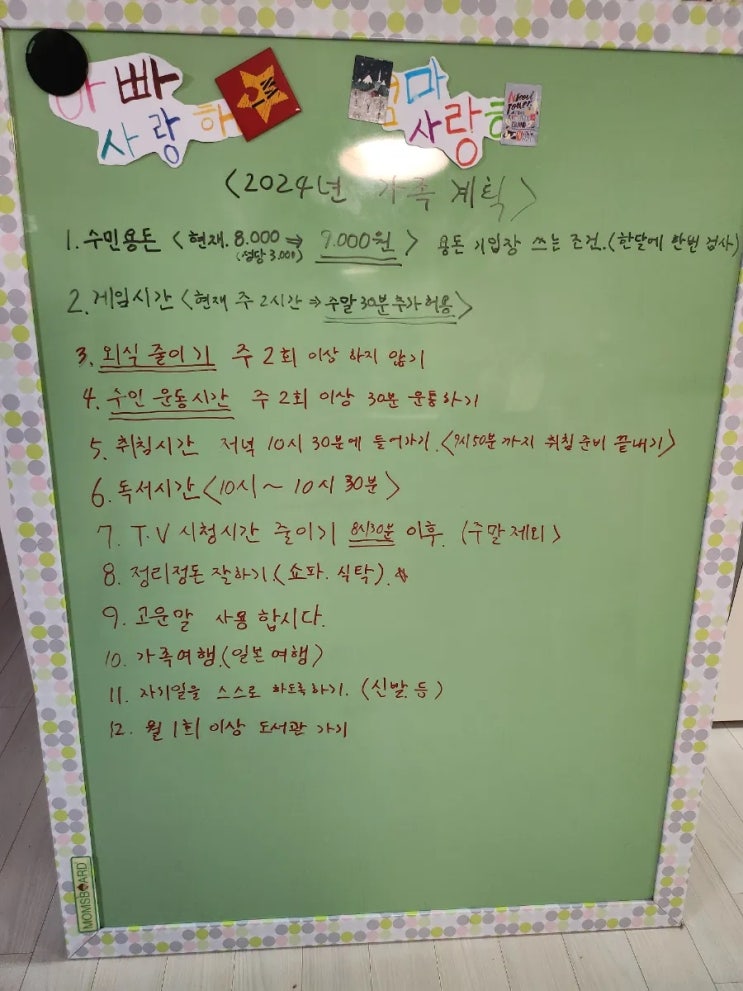 아빠
사랑하
엄마
사랑해
<2024년 가족 계획>
1. 수민용돈 <현재. 8.000 ⇒ 9.000원> 용돈 기입장 쓰는 조건.(한달에 한번 검사)
(성당 3.000)
2. 게임시간 <현재 주 2시간 ⇒ 주말 30분 추가 허용>
3. 외식 줄이기 주 2회 이상 하지 않기
4. 수인 운동시간 주 2회 이상 30분 운동하기
5. 취침시간 저녁 10시 30분에 들어가기.<9시50분까지 취침준비 끝내기>
6. 독서시간<10시~10시 30분>
7. T.V 시청시간 줄이기 8시30분 이후. (주말 제외>
8. 정리정돈 잘하기<쇼파. 식탁).
9. 고운말 사용 합시다.
10. 가족여행.(일본여행)
11. 자기일을 스스로 하도록하기. (신발 등)
12. 월 1회 이상 도서관 가기
MOMSBOARD